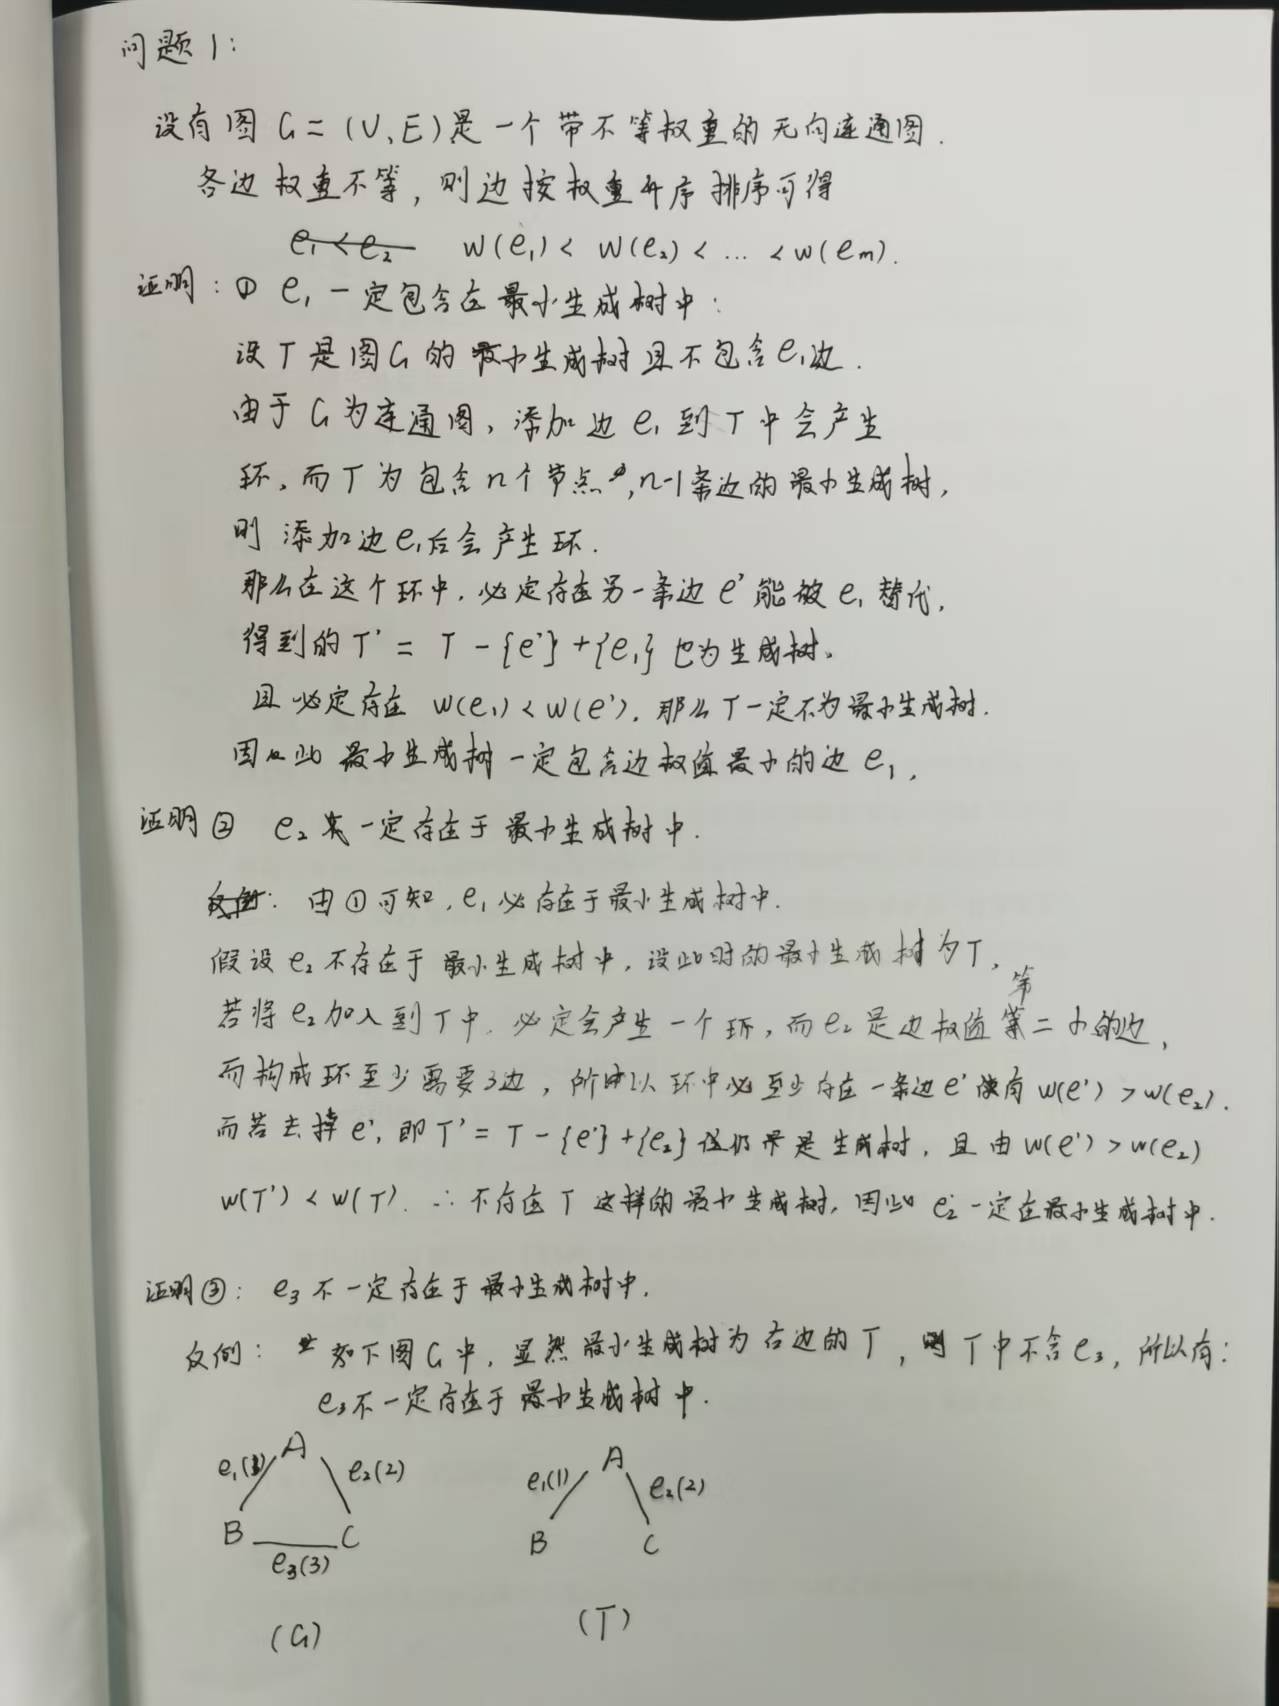 问题1:
设有图 G = (V、E)是一个带不等权重的无向连通图.
各边权重不等,则边按权重升序排序可得
e₁<e₂ w(e₁)< w(e₂)< ... <w(em).
证明:① e₁一定包含在最小生成树中:
设T是图G的最小生成树且不包含e₁边.
由于G为连通图,添加边e₁到T中会产生
环,而T为包含n个节点,n-1条边的最小生成树,
则添加边e₁后会产生环.
那么在这个环中,必定存在另一条边e'能被e₁替代,
得到的T' = T - {e'} + {e₁}也为生成树。
且必定存在 w(e₁)<w(e'). 那么T一定不为最小生成树.
因此最小生成树一定包含边权值最小的边e₁.
证明② e₂一定存在于最小生成树中.
由①可知,e₁必存在于最小生成树中.
假设e₂不存在于最小生成树中,设此时的最小生成树为T,
若将e₂加入到T中.必定会产生一个环,而e₂是边权值第二小的边,
而构成环至少需要3边,所以环中必至少存在一条边e'使有w(e')>w(e₂).
而若去掉e',即T' = T - {e'} + {e₂}仍是生成树,且由w(e')>w(e₂)
w(T')<w(T). ∴不存在T这样的最小生成树,因此e₂一定在最小生成树中.
证明③: e₃不一定存在于最小生成树中.
反例: 如下图G中,显然最小生成树为右边的T,则T中不含e₃,所以有:
e₃不一定存在于最小生成树中.
A A
e₁(1) e₂(2) e₁(1) e₂(2)
B C B C
e₃(3)
(G) (T)